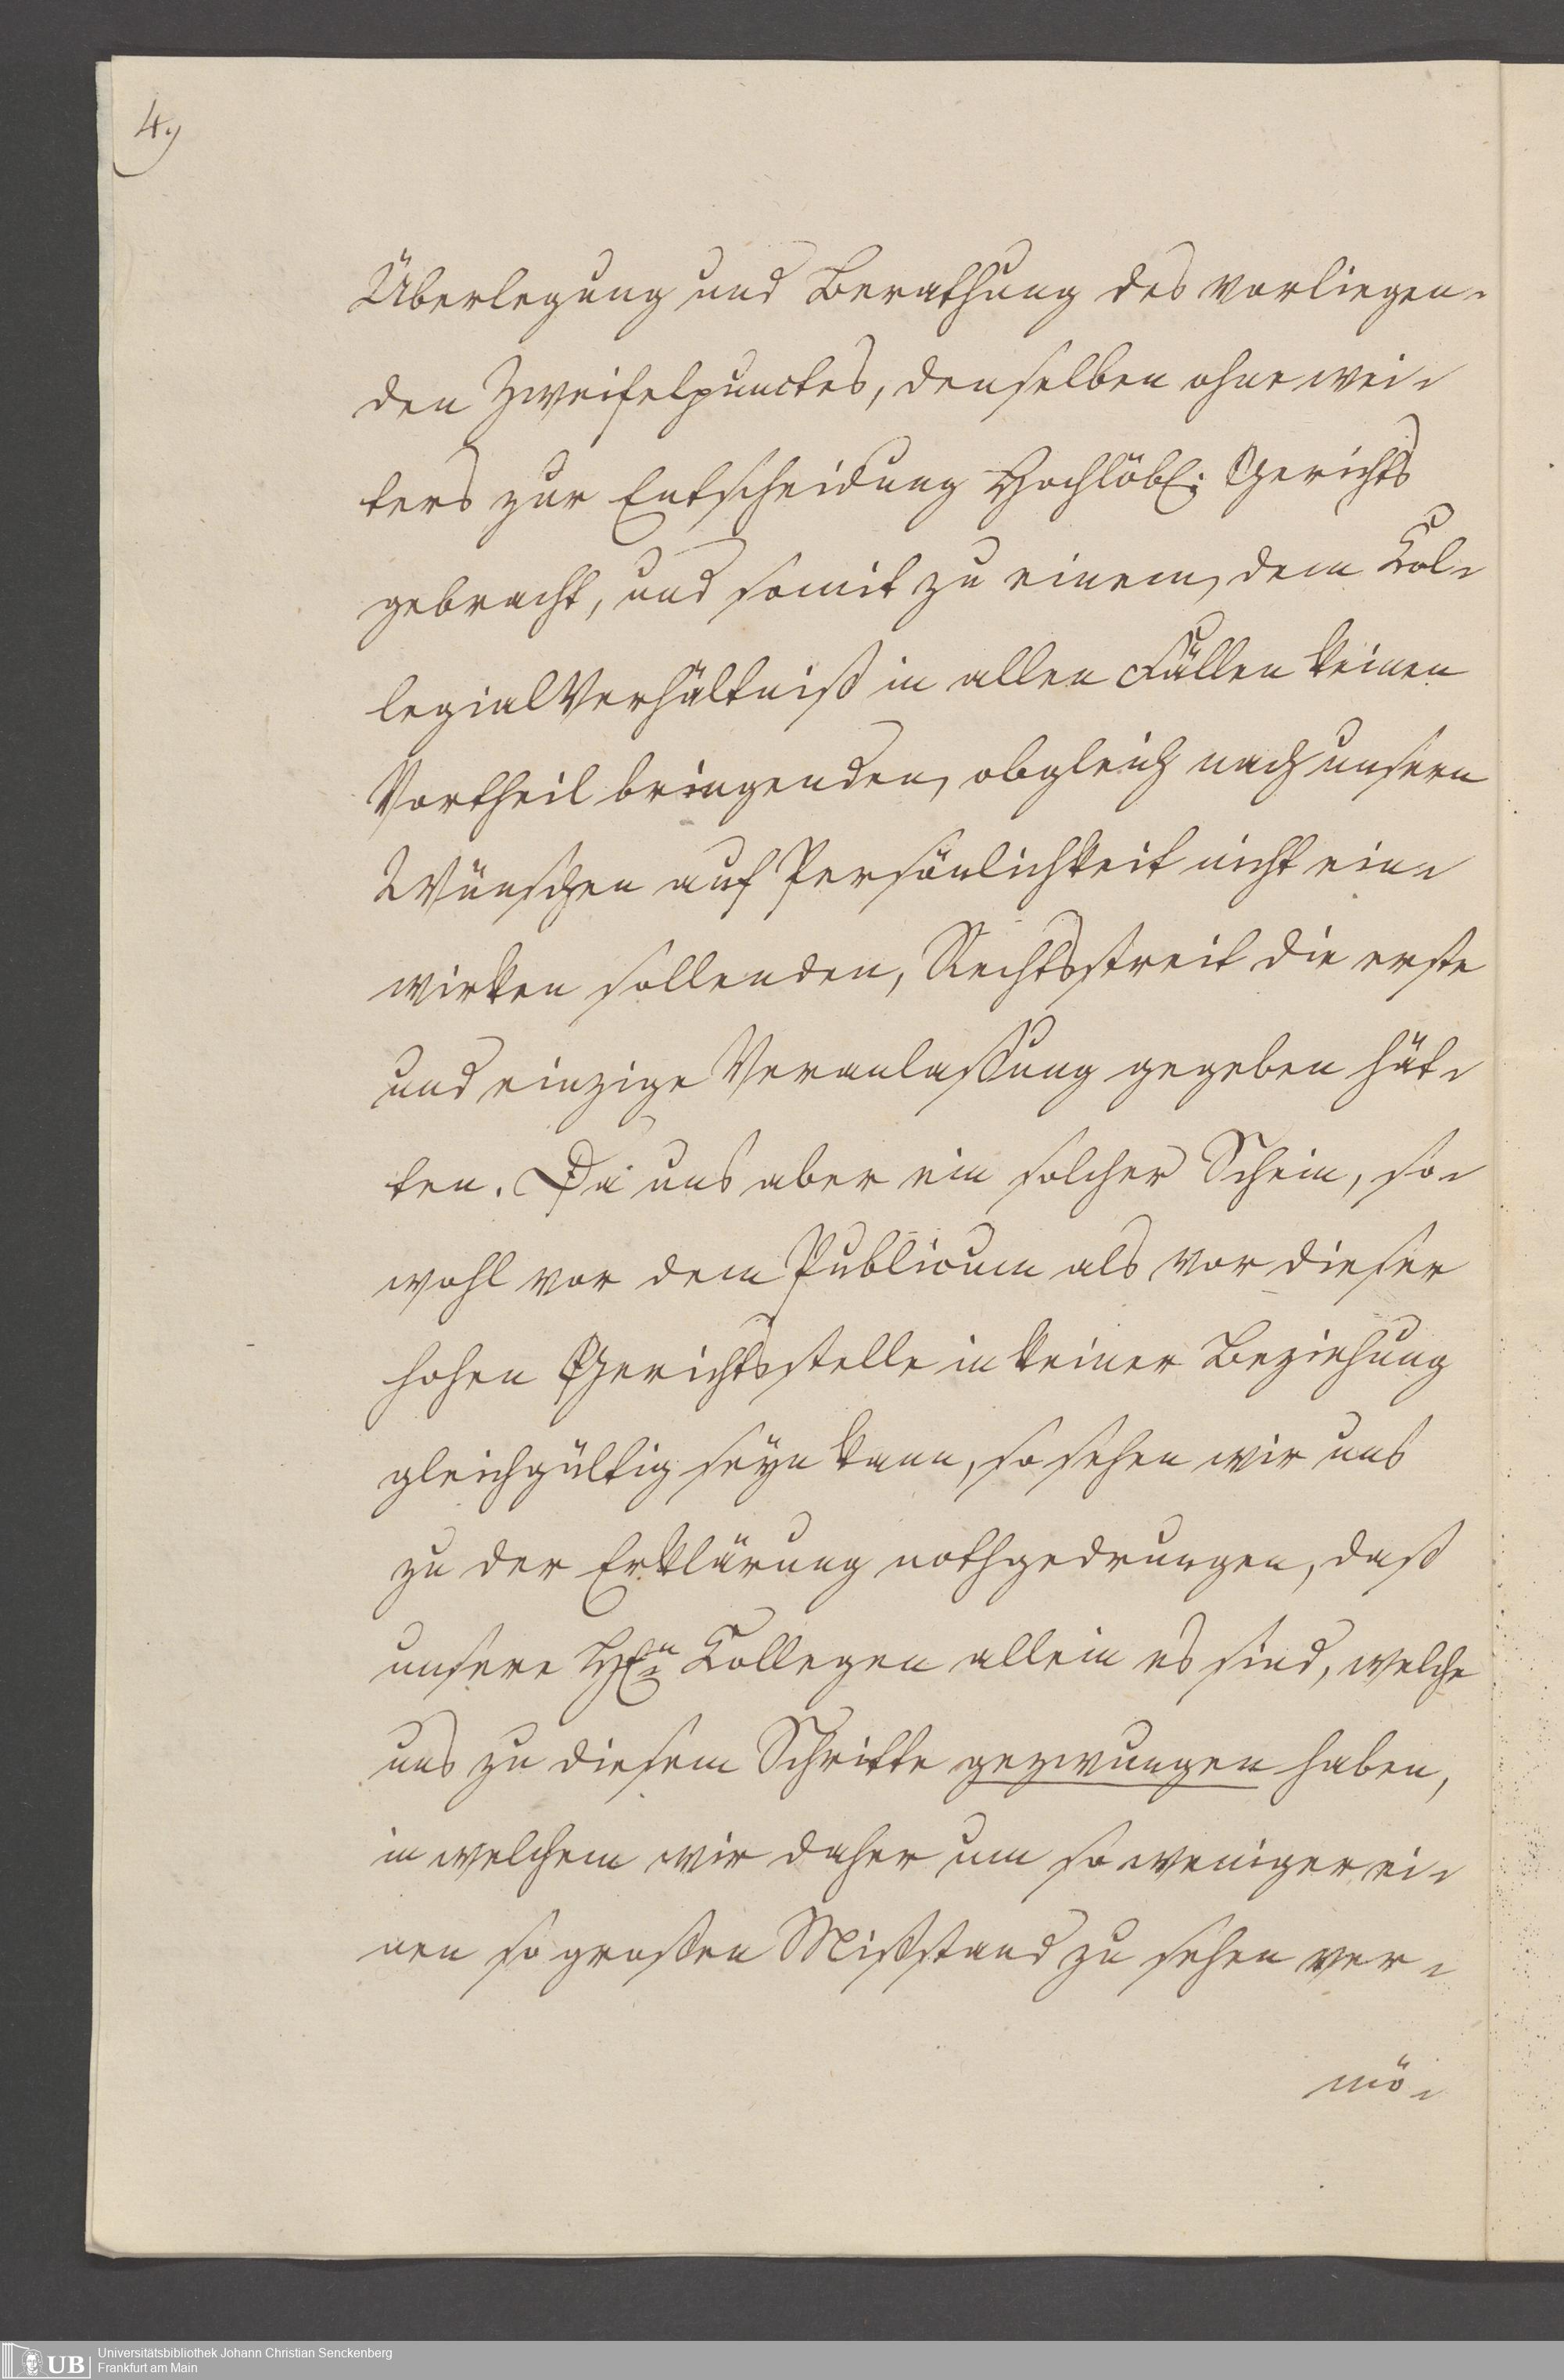 4.)
Überlegung und Berathung des vorliegen-
den Zweifelpunctes, denselben ohne wei-
ters zur Entscheidung Hochlöbl: Gerichts
gebracht, und somit zu einem, dem Col-
legialVerhältniß in allen Fällen keinen
Vortheil bringenden, obgleich nach unsern
Wünschen auf Persönlichkeit nicht ein-
wirken sollenden, Rechtsstreit die erste
und einzige Veranlassung gegeben hät-
ten. Da uns aber ein solcher Schein, so-
wohl vor dem Publicum als vor dieser
hohen Gerichtsstelle in keiner Beziehung
gleichgültig seyn kann, so sehen wir uns
zu der Erklärung nothgedrungen, daß
unsere Hrn Collegen allein es sind, welche
uns zu diesem Schritte gezwungen haben,
in welchem wir daher um so weniger ei-
nen so großen Mißstand zu sehen ver-
mö-
UB
Universitätsbibliothek Johann Christian Senckenberg
Frankfurt am Main